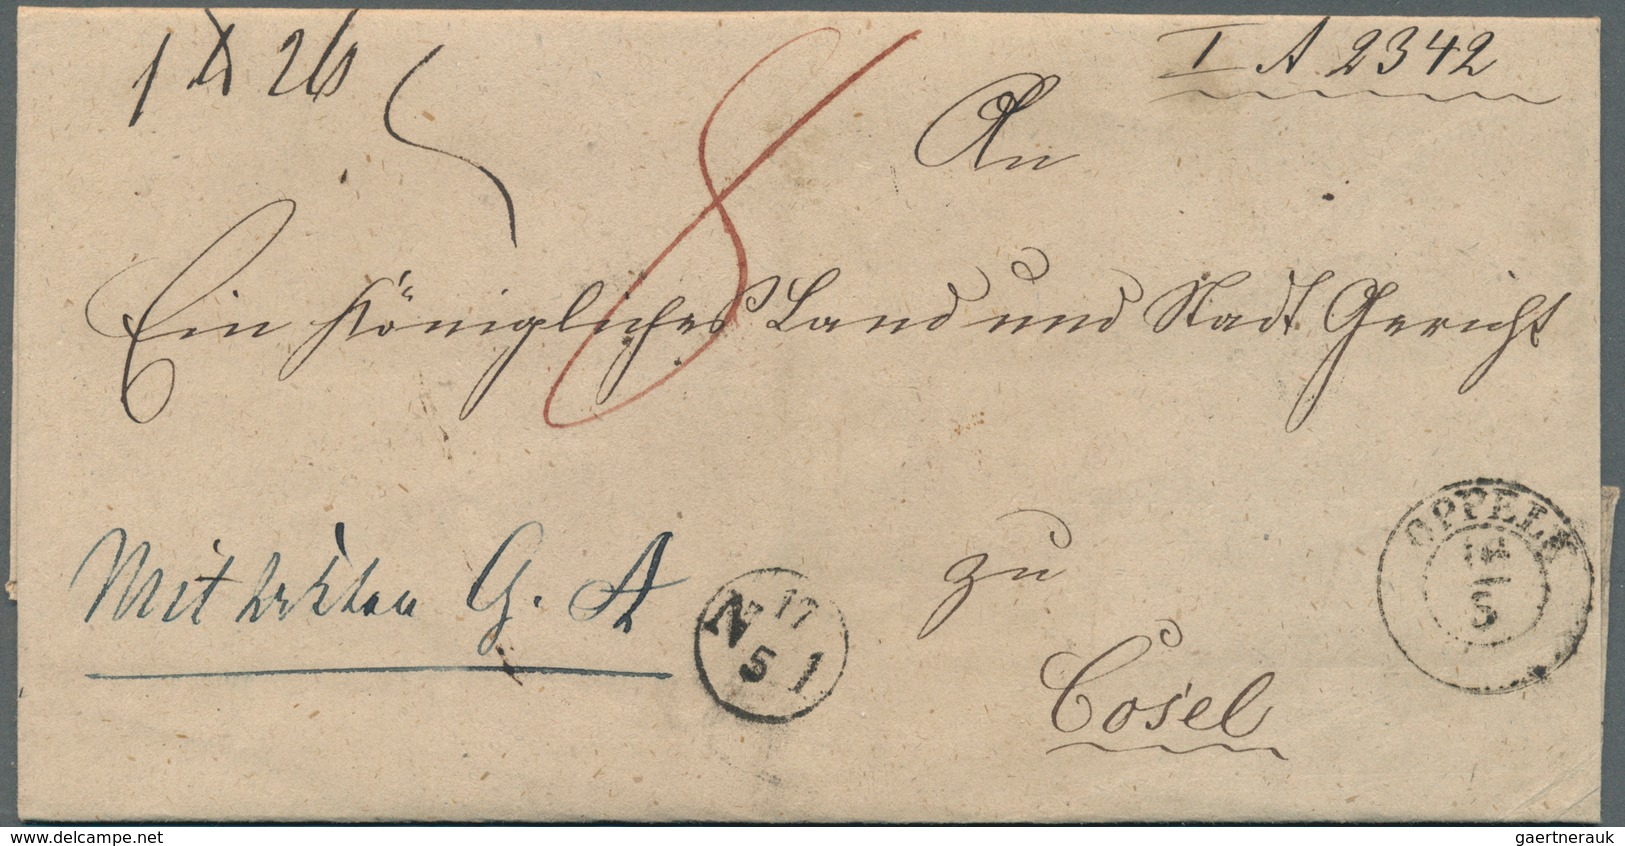 I A 2342
8
An
Ein Königliches Land und Stadt Gericht
Mit
G. A
N 17
5 1
zu
Cosel
OPPELN
5
www.delcampe.net
gaertnerauk